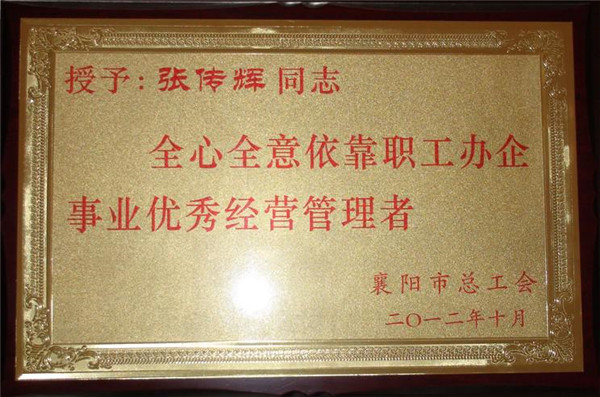 授予：张传辉同志
全心全意依靠职工办企
事业优秀经营管理者
襄阳市总工会
二〇一二年十月